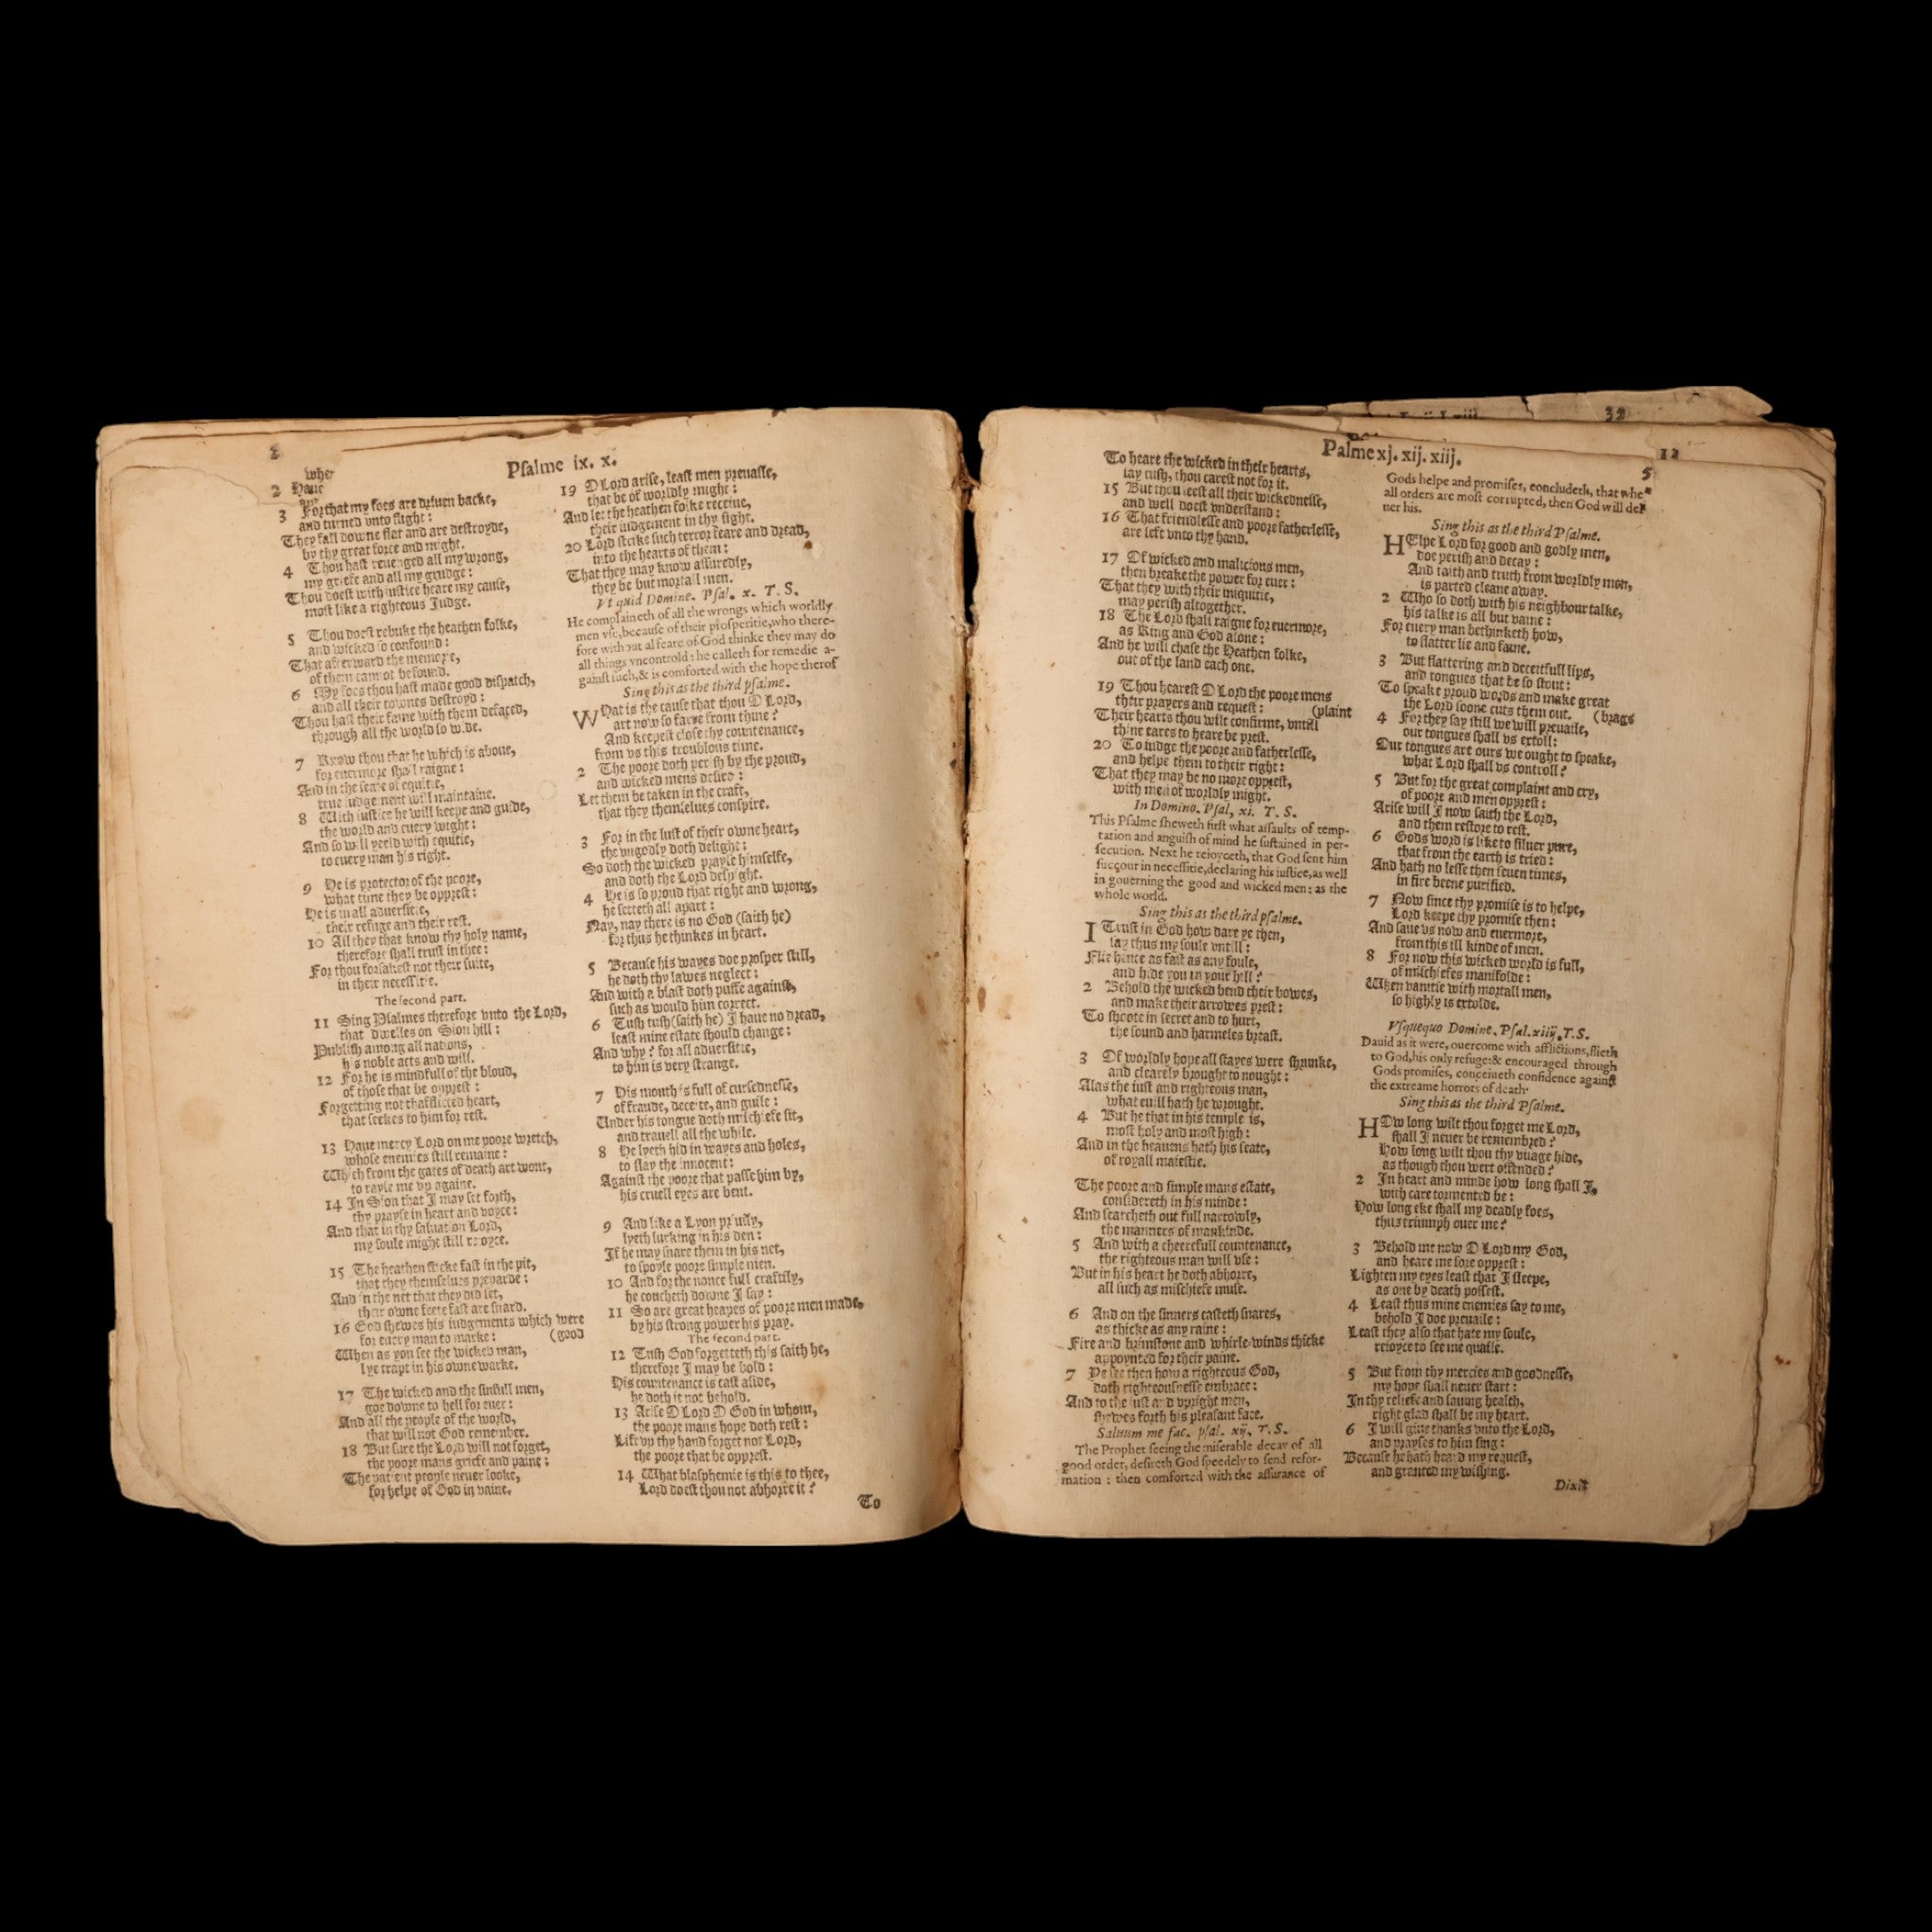 2
Psalme ix. x.
whe
2 Haue
any
3 For that my foes are driuen backe,
and turned vnto flight:
They fall downe flat and are destroyde,
by thy great force and might.
4 Thou hast reuenged all my wrong,
my griefe and all my grudge:
Thou doest with iustice heare my cause,
most like a righteous Judge.
5 Thou doest rebuke the heathen folke,
and wicked so confound:
That afterward the memorie,
of them cannot be found.
6 My foes thou hast made good dispatch,
and all their townes destroyd:
Thou hast their fame with them defaced,
through all the world so wide.
7 Know thou that he which is aboue,
for euermore shall raigne:
And in the seate of equitie,
true iudgement will maintaine.
8 With iustice he will keepe and guide,
the world and euery wight:
And so will yeeld with equitie,
to euery man his right.
9 He is protector of the poore,
what time they be opprest:
He is in all aduersitie,
their refuge and their rest.
10 All they that know thy holy name,
therefore shall trust in thee:
For thou forsakest not their suite,
in their necessitie.
The second part.
11 Sing Psalmes therefore vnto the Lord,
that dwelles on Sion hill:
Publish among all nations,
his noble acts and will.
12 For he is mindfull of the bloud,
of those that be opprest:
Forgetting not thafflicted heart,
that seekes to him for rest.
13 Haue mercy Lord on me poore wretch,
whose enemies still remaine:
Which from the gates of death art wont,
to rayse me vp againe.
14 In Sion that I may set forth,
thy prayse in heart and voyce:
And that in thy saluation Lord,
my soule might still reioyce.
15 The heathen sticke fast in the pit,
that they themselues preparde:
And in the net that they did set,
their owne feete fast are snard.
16 God shewes his iudgements which were
for euery man to marke: (good
When as you see the wicked man,
lye trapt in his owne warke.
17 The wicked and the sinfull men,
goe downe to hell for euer:
And all the people of the world,
that will not God remember.
18 But sure the Lord will not forget,
the poore mans griefe and paine:
The patient people neuer looke,
for helpe of God in vaine.
19 O Lord arise, least men preuaile,
that be of worldly might:
And let the heathen folke receiue,
their iudgement in thy sight.
20 Lord strike such terror feare and dread,
into the hearts of them:
That they may know assuredly,
they be but mortall men.
Vt quid Domine. Psal. x. T. S.
He complaineth of all the wrongs which worldly
men vse, because of their prosperitie, who there-
fore without al feare of God thinke they may do
all things vncontrold: he calleth for remedie a-
gainst such, & is comforted with the hope therof
Sing this as the third psalme.
WHat is the cause that thou O Lord,
art now so farre from thine?
And keepest close thy countenance,
from vs this troublous time.
2 The poore doth perish by the proud,
and wicked mens desire:
Let them be taken in the craft,
that they themselues conspire.
3 For in the lust of their owne heart,
the vngodly doth delight:
So doth the wicked prayse himselfe,
and doth the Lord despight.
4 He is so proud that right and wrong,
he setteth all apart:
Nay, nay there is no God (saith he)
for thus he thinkes in heart.
5 Because his wayes doe prosper still,
he doth thy lawes neglect:
And with a blast doth puffe against,
such as would him correct.
6 Tush tush (saith he) I haue no dread,
least mine estate should change:
And why? for all aduersitie,
to him is very strange.
7 His mouth is full of cursednesse,
of fraude, deceite, and guile:
Under his tongue doth mischiefe sit,
and trauell all the while.
8 He lyeth hid in wayes and holes,
to slay the innocent:
Against the poore that passe him by,
his cruell eyes are bent.
9 And like a Lyon priuily,
lyeth lurking in his den:
If he may snare them in his net,
to spoyle poore simple men.
10 And for the nonce full craftily,
he coucheth downe I say:
11 So are great heapes of poore men made,
by his strong power his pray.
The second part.
12 Tush God forgetteth this saith he,
therefore I may be bold:
His countenance is cast aside,
he doth it not behold.
13 Arise O Lord O God in whom,
the poore mans hope doth rest:
Lift vp thy hand forget not Lord,
the poore that be opprest.
14 What blasphemie is this to thee,
Lord doest thou not abhorre it?
To
32
12
Palme xj. xij. xiij.
5
To heare the wicked in their hearts,
say tush, thou carest not for it.
15 But thou seest all their wickednesse,
and well doest vnderstand:
16 That friendlesse and poore fatherlesse,
are left vnto thy hand.
17 Of wicked and malicious men,
then breake the power for euer:
That they with their iniquitie,
may perish altogether.
18 The Lord shall raigne for euermore,
as King and God alone:
And he will chase the Heathen folke,
out of the land each one.
19 Thou hearest O Lord the poore mens
their prayers and request: (plaint
Their hearts thou wilt confirme, vntill
thine eares to heare be prest.
20 To iudge the poore and fatherlesse,
and helpe them to their right:
That they may be no more opprest,
with men of worldly might.
In Domino. Psal, xi. T. S.
This Psalme sheweth first what assaults of temp-
tation and anguish of mind he sustained in per-
secution. Next he reioyceth, that God sent him
succour in necessitie, declaring his iustice, as well
in gouerning the good and wicked men: as the
whole world.
Sing this as the third psalme.
I Trust in God how dare ye then,
say thus my soule vntill:
Flie hence as fast as any foule,
and hide you in your hill?
2 Behold the wicked bend their bowes,
and make their arrowes prest:
To shoote in secret and to hurt,
the sound and harmeles breast.
3 Of worldly hope all stayes were shrunke,
and clearely brought to nought:
Alas the iust and righteous man,
what euill hath he wrought.
4 But he that in his temple is,
most holy and most high:
And in the heauens hath his seate,
of royall maiestie.
The poore and simple mans estate,
considereth in his minde:
And searcheth out full narrowly,
the manners of mankinde.
5 And with a cheerefull countenance,
the righteous man will vse:
But in his heart he doth abhorre,
all such as mischiefe muse.
6 And on the sinners casteth snares,
as thicke as any raine:
Fire and brimstone and whirle-winds thicke
appoynted for their paine.
7 Ye see then how a righteous God,
doth righteousnesse embrace:
And to the iust and vpright men,
shewes forth his pleasant face.
Saluum me fac. psal. xij. T. S.
The Prophet seeing the miserable decay of all
good order, desireth God speedely to send refor-
mation: then comforted with the assurance of
Gods helpe and promises, concludeth, that whe
all orders are most corrupted, then God will deli
uer his.
Sing this as the third Psalme.
HElpe Lord for good and godly men,
doe perish and decay:
And faith and truth from worldly men,
is parted cleane away.
2 Who so doth with his neighbour talke,
his talke is all but vaine:
For euery man bethinketh how,
to flatter lie and faine.
3 But flattering and deceitfull lips,
and tongues that be so stout:
To speake proud words and make great
the Lord soone cuts them out. (brags
4 For they say still we will preuaile,
our tongues shall vs extoll:
Our tongues are ours we ought to speake,
what Lord shall vs controll?
5 But for the great complaint and cry,
of poore and men opprest:
Arise will I now saith the Lord,
and them restore to rest.
6 Gods word is like to siluer pure,
that from the earth is tried:
And hath no lesse then seuen times,
in fire beene purified.
7 Now since thy promise is to helpe,
Lord keepe thy promise then:
And saue vs now and euermore,
from this ill kinde of men.
8 For now this wicked world is full,
of mischiefes manifolde:
When vanitie with mortall men,
so highly is extolde.
Vsquequo Domine. Psal. xiij, T. S.
Dauid as it were, ouercome with afflictions, flieth
to God, his only refuge: & encouraged through
Gods promises, conceiueth confidence against
the extreame horrors of death
Sing this as the third Psalme.
HOw long wilt thou forget me Lord,
shall I neuer be remembred?
How long wilt thou thy visage hide,
as though thou wert offended?
2 In heart and minde how long shall I,
with care tormented be:
How long eke shall my deadly foes,
thus triumph ouer me?
3 Behold me now O Lord my God,
and heare me sore opprest:
Lighten my eyes least that I sleepe,
as one by death possest.
4 Least thus mine enemies say to me,
behold I doe preuaile:
Least they also that hate my soule,
reioyce to see me quaile.
5 But from thy mercies and goodnesse,
my hope shall neuer start:
In thy reliefe and sauing health,
right glad shall be my heart.
6 I will giue thanks vnto the Lord,
and prayses to him sing:
Because he hath heard my request,
and granted my wishing.
Dixit